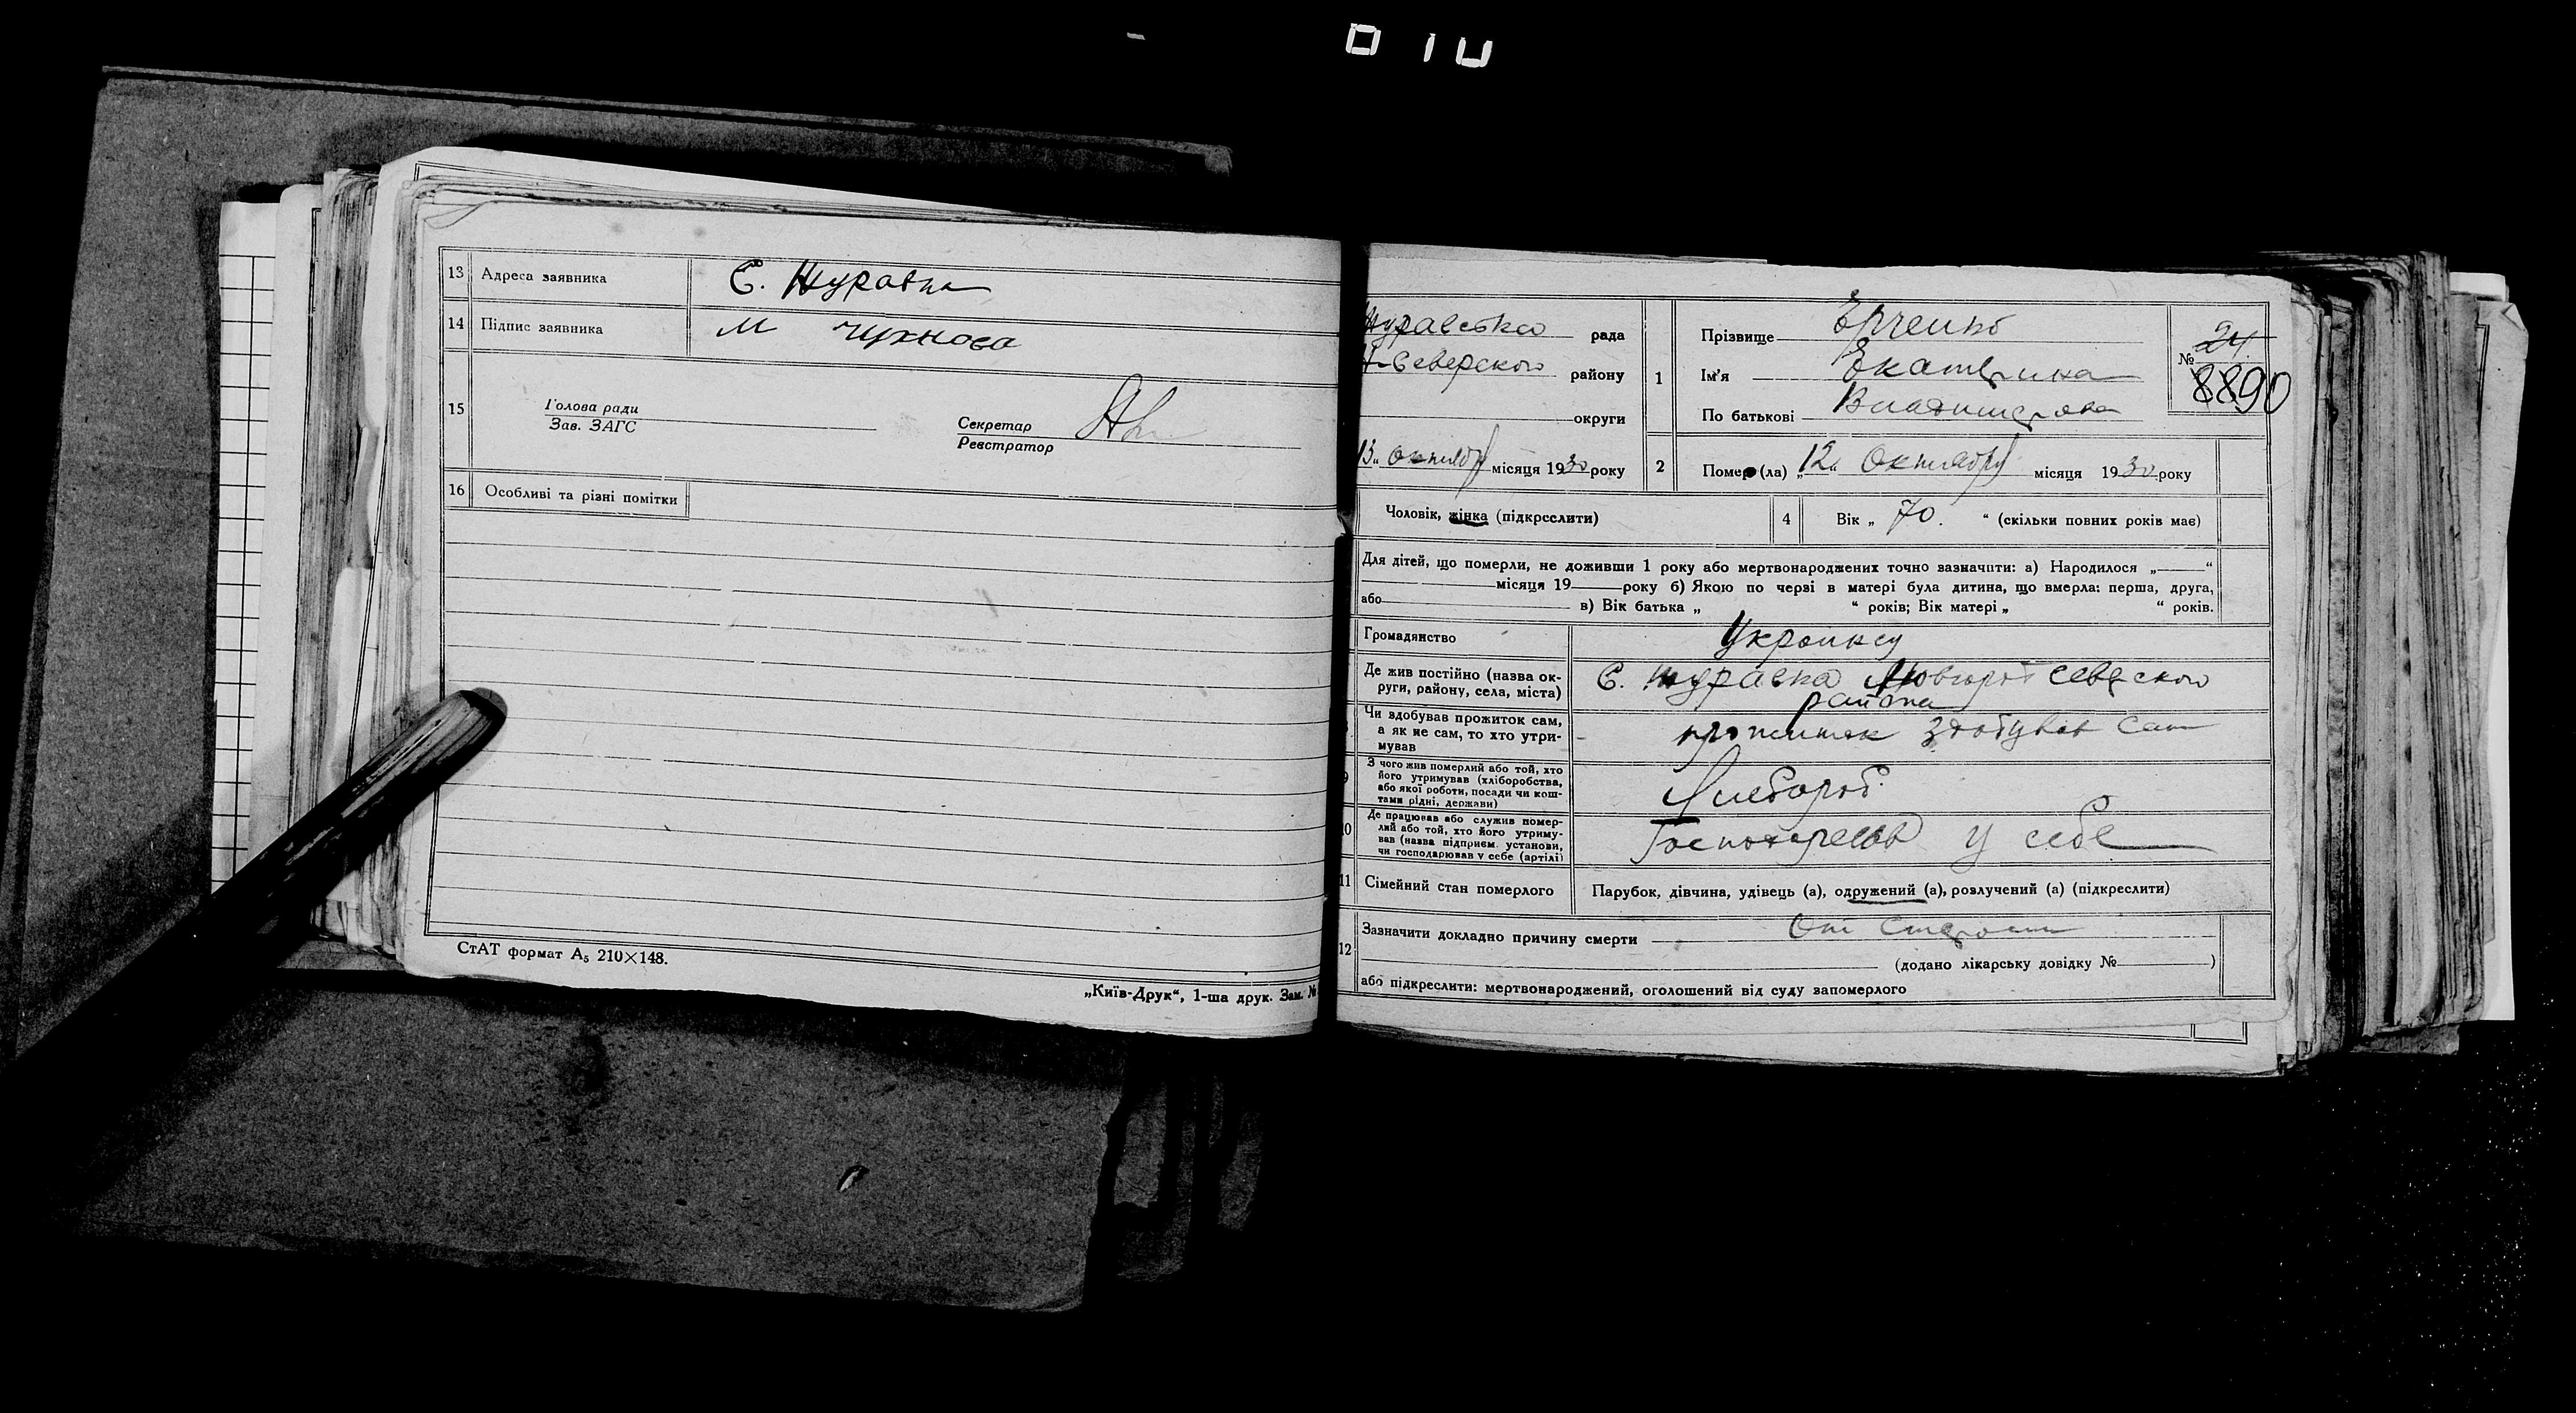 13 Адреса заявника С. Журавка
14 Підпис заявника М Чухнова
15 Голова ради
Зав. ЗАГС
Секретар
Реєстратор
16 Особливі та різні помітки
СтАТ формат А5 210×148.
„Київ-Друк“, 1-ша друк. Зам. №
Журавська рада
Н-Северского району
округи
13 „ октября місяця 1930 року
1 Прізвище
Ім’я Екатерина
По батькові
№ 24
8890
2 Помер (ла) „ 12 “ Октября місяця 1930 року
Чоловік, жінка (підкреслити)
4 Вік „ 70. “ (скільки повних років має)
Для дітей, що померли, не доживши 1 року або мертвонароджених точно зазначити: а) Народилося „ “
місяця 19 року б) Якою по черзі в матері була дитина, що вмерла: перша, друга,
або в) Вік батька „ “ років; Вік матері „ “ років.
Громадянство
Де жив постійно (назва ок-
руги, району, села, міста)
С. Журавка Новгород Северского
района
Чи здобував прожиток сам,
а як не сам, то хто утри-
мував
прожиток здобував сам
9 З чого жив померлий або той, хто
його утримував (хліборобства,
або якої роботи, посади чи кош-
тами рідні, держави)
Хлебороб.
10 Де працював або служив помер-
лий або той, хто його утриму-
вав (назва підприєм. установи,
чи господарював у себе (артілі)
у себе
11 Сімейний стан померлого Парубок, дівчина, удівець (а), одружений (а), розлучений (а) (підкреслити)
12 Зазначити докладно причину смерти От старости
(додано лікарську довідку № )
або підкреслити: мертвонароджений, оголошений від суду запомерлого